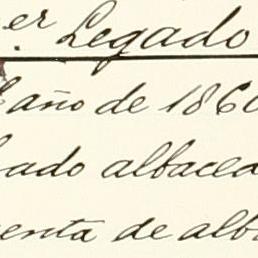 er. Legado
año de 1860
ado albacea
enta de alb